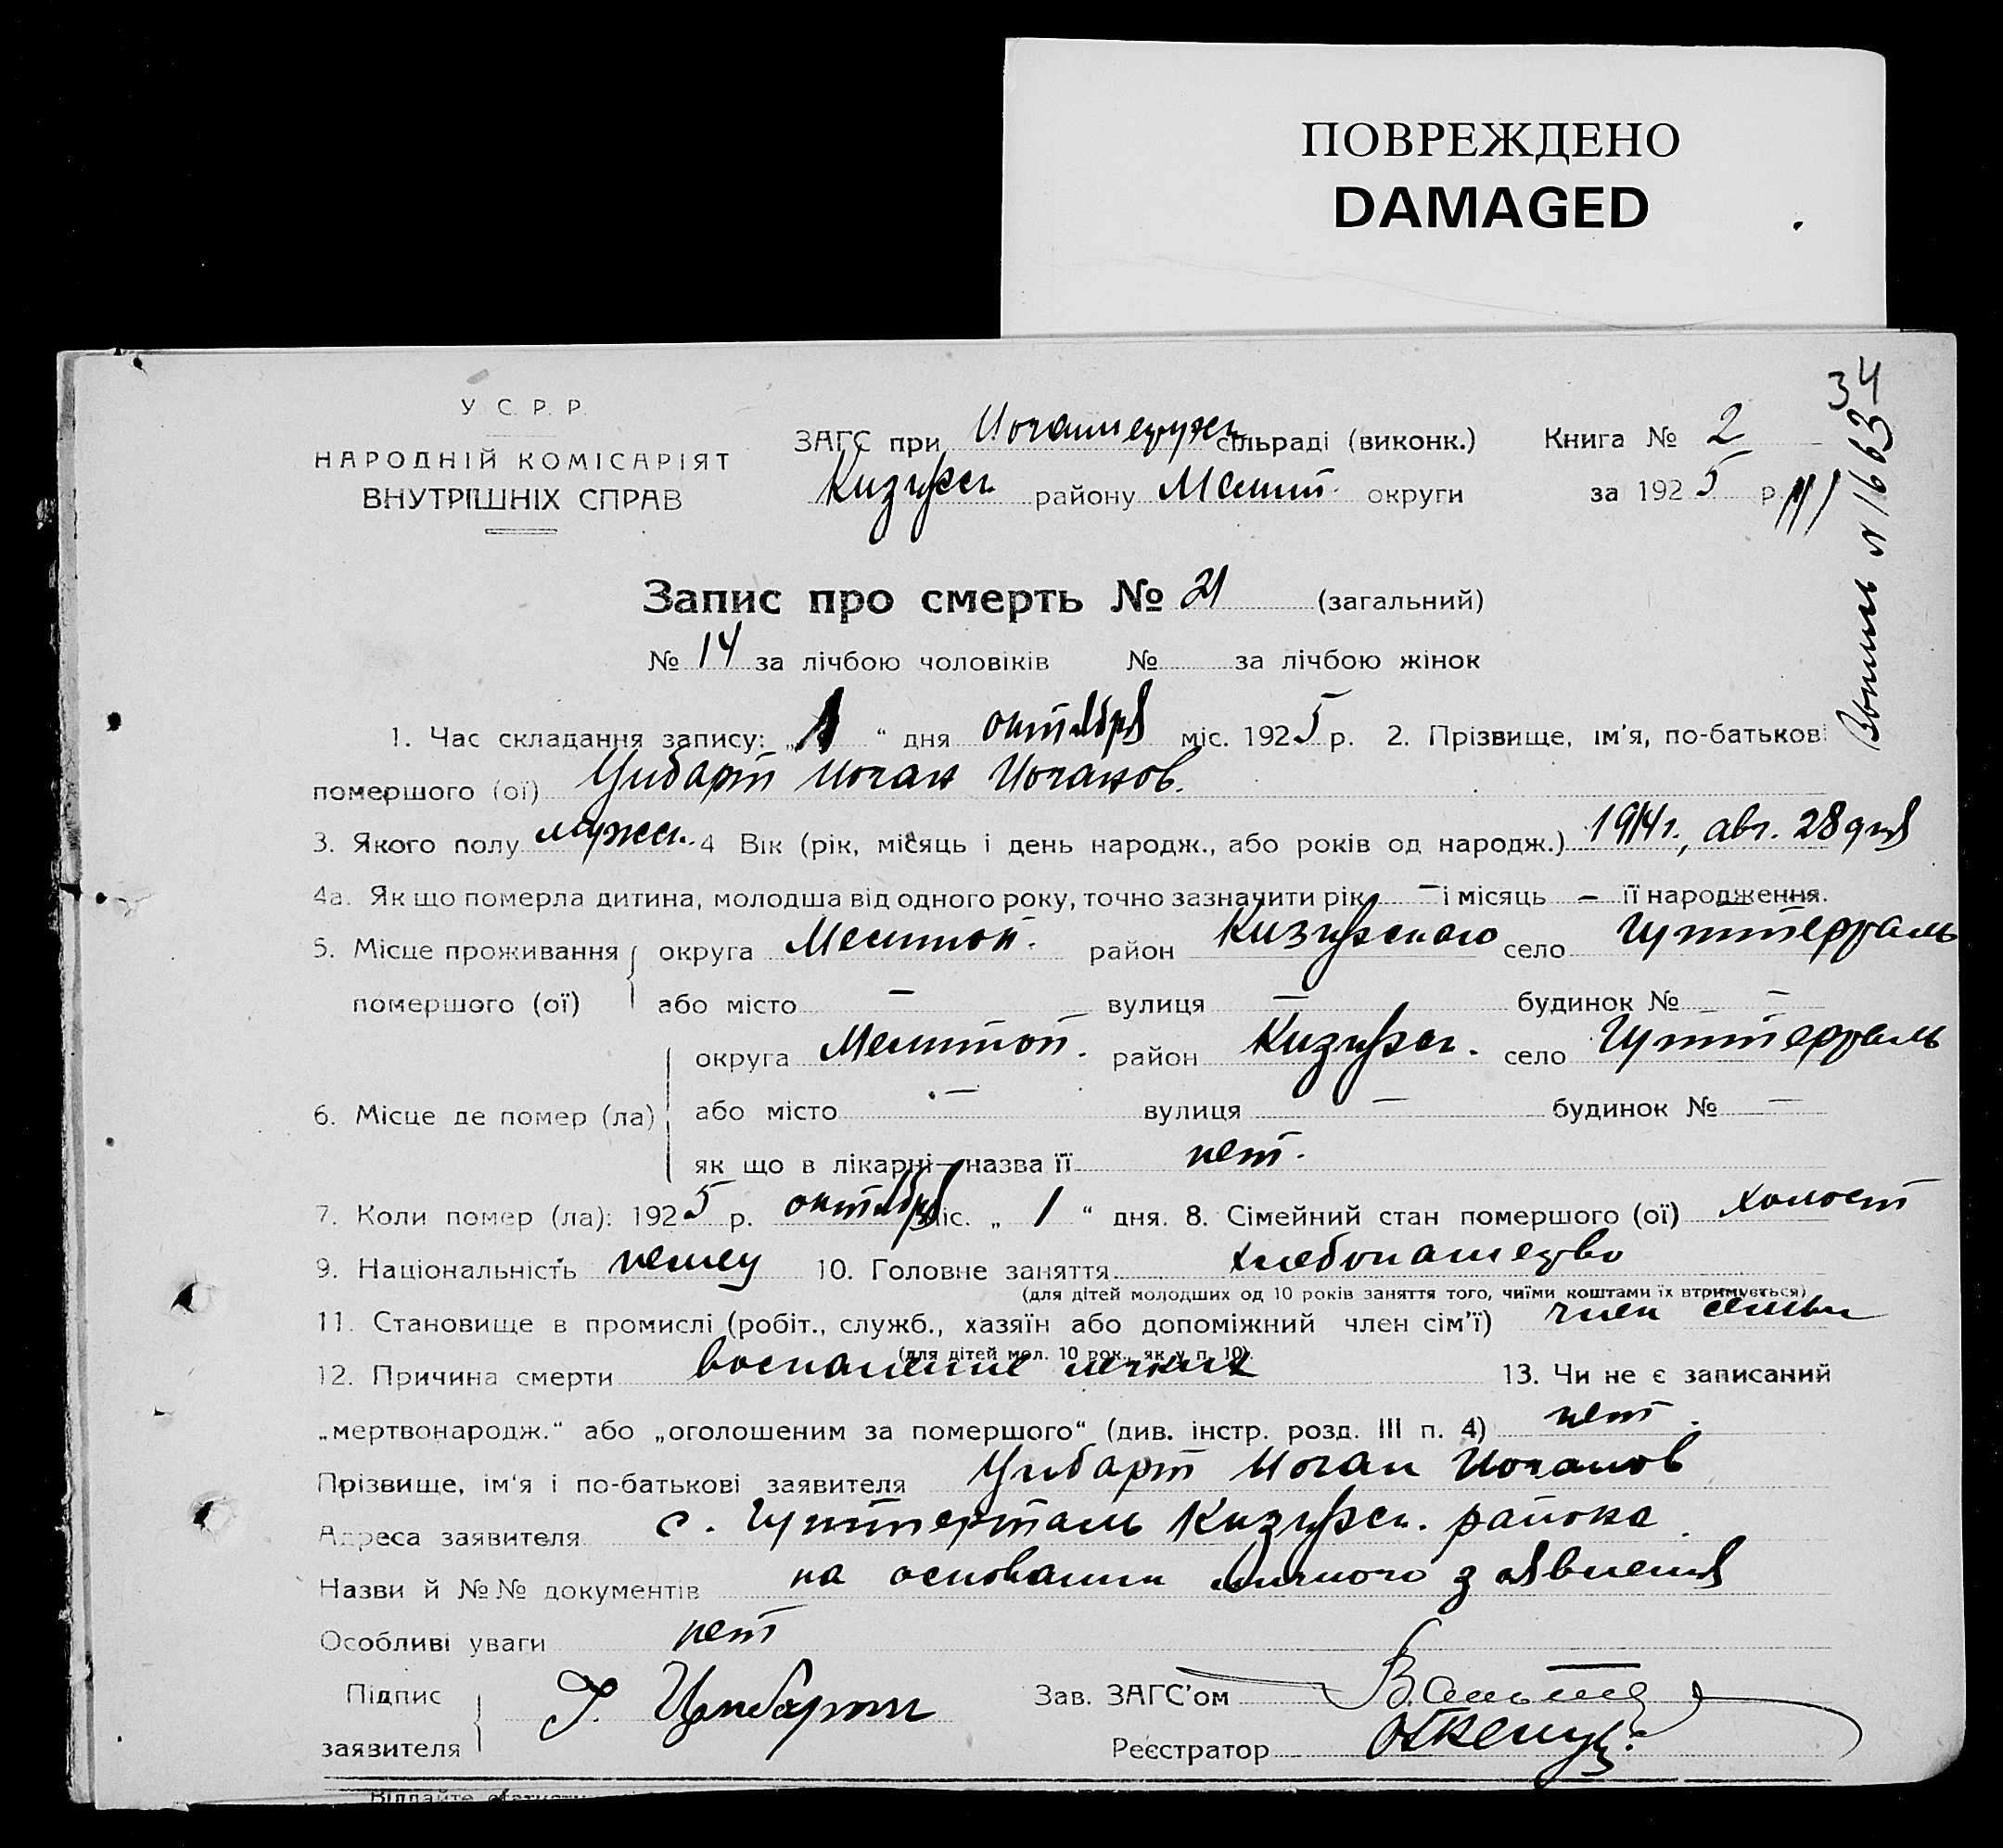 ПОВРЕЖДЕНО
DAMAGED
34
У. С. Р. Р.
НАРОДНІЙ КОМІСАРІЯТ
ВНУТРІШНІХ СПРАВ
ЗАГС при сільраді (виконк.) Книга № 2
Кизиярск. району Мелит. округи за 1925 р.
№ 1663
Запис про смерть № 21 (загальний)
№ 14 за лічбою чоловіків № за лічбою жінок
1. Час складання запису: „1“ дня октября міс. 1925 р. 2. Прізвище, ім'я, по-батькові
помершого (ої) Цибарт Иоган Иоганов.
3. Якого полу мужск. 4 Вік (рік, місяць і день народж., або років од народж.) 1914 г., авг. 28 дня
4а. Як що померла дитина, молодша від одного року, точно зазначити рік — і місяць — її народження.
5. Місце проживання округа Мелитоп. район Кизиярского село Гуттерталь
помершого (ої) або місто — вулиця — будинок № —
округа Мелитоп. район Кизиярск. село Гуттерталь
6. Місце де помер (ла) або місто — вулиця — будинок № —
як що в лікарні—назва її нет.
7. Коли помер (ла): 1925 р. октября міс. „1“ дня. 8. Сімейний стан помершого (ої) холост
9. Національність немец 10. Головне заняття хлебопашество
(для дітей молодших од 10 років заняття того, чиїми коштами їх втримується)
11. Становище в промислі (робіт., служб., хазяїн або допоміжний член сім'ї) член семьи
(для дітей мол. 10 рок., як у п. 10)
12. Причина смерти воспаление легких 13. Чи не є записаний
„мертвонародж.“ або „оголошеним за помершого“ (див. інстр. розд. III п. 4) нет.
Прізвище, ім'я і по-батькові заявителя Цибарт Иоган Иоганов
Адреса заявителя с. Гуттерталь Кизиярск. района
Назви й №№ документів на основании личного заявления
Особливі уваги нет
Підпис заявителя Цибарт Зав. ЗАГС'ом
Реєстратор